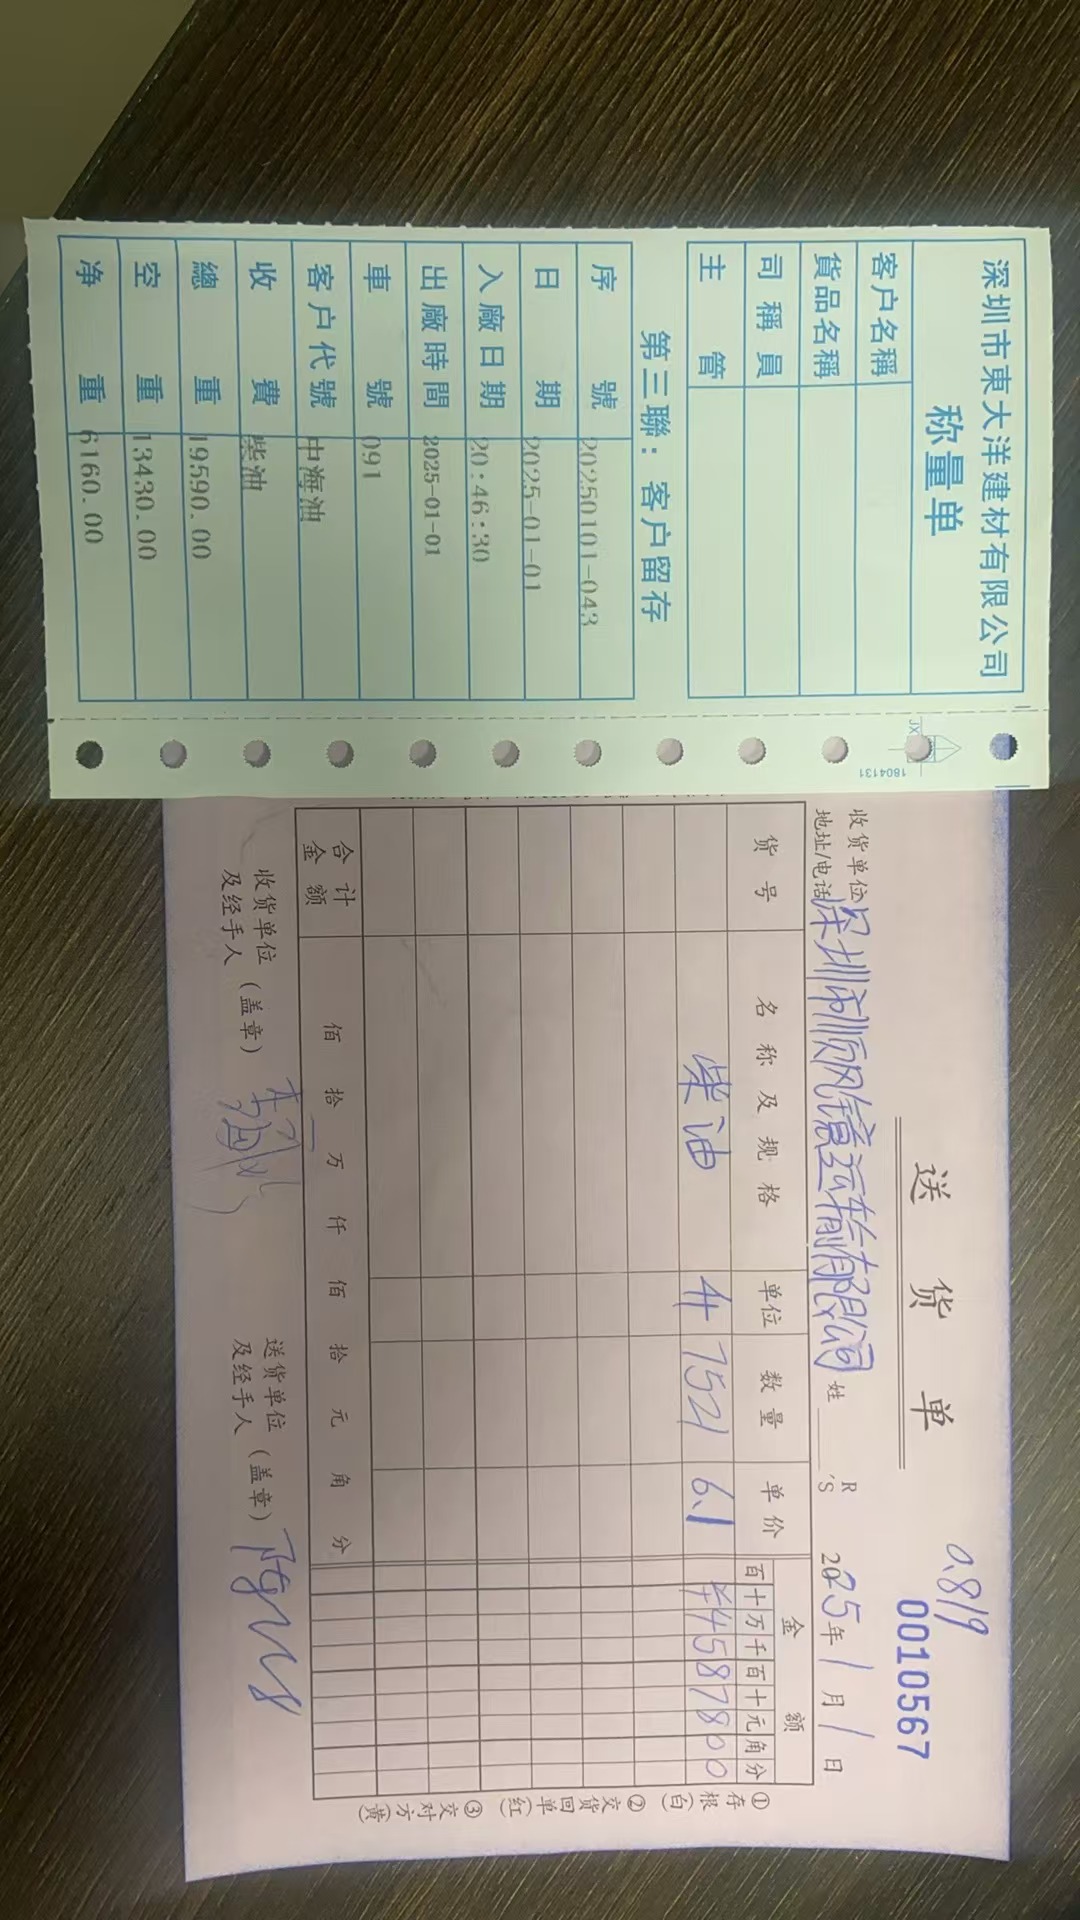 深圳市東大洋建材有限公司
称量单
客户名稱
貨品名稱
司稱員
主管
第三聯：客户留存
序號 20250101-043
日期 2025-01-01
入廠日期 20:46:30
出廠時間 2025-01-01
車號 091
客户代號 中海油
收費 柴油
總重 19590.00
空重 13430.00
净重 6160.00
JX
1804131
送货单
0.819
0010567
收货单位
地址/电话
深圳市顺风镱运输有限公司
姓 R
'S
2025年1月1日
货号 名称及规格 单位 数量 单价 金额
百十万千百十元角分
柴油 升 7521 6.1 ¥4587800
合计金额 佰拾万仟佰拾元角分
收货单位及经手人（盖章）
送货单位及经手人（盖章）
①存根（白）
②交货回单（红）
③交对方（黄）